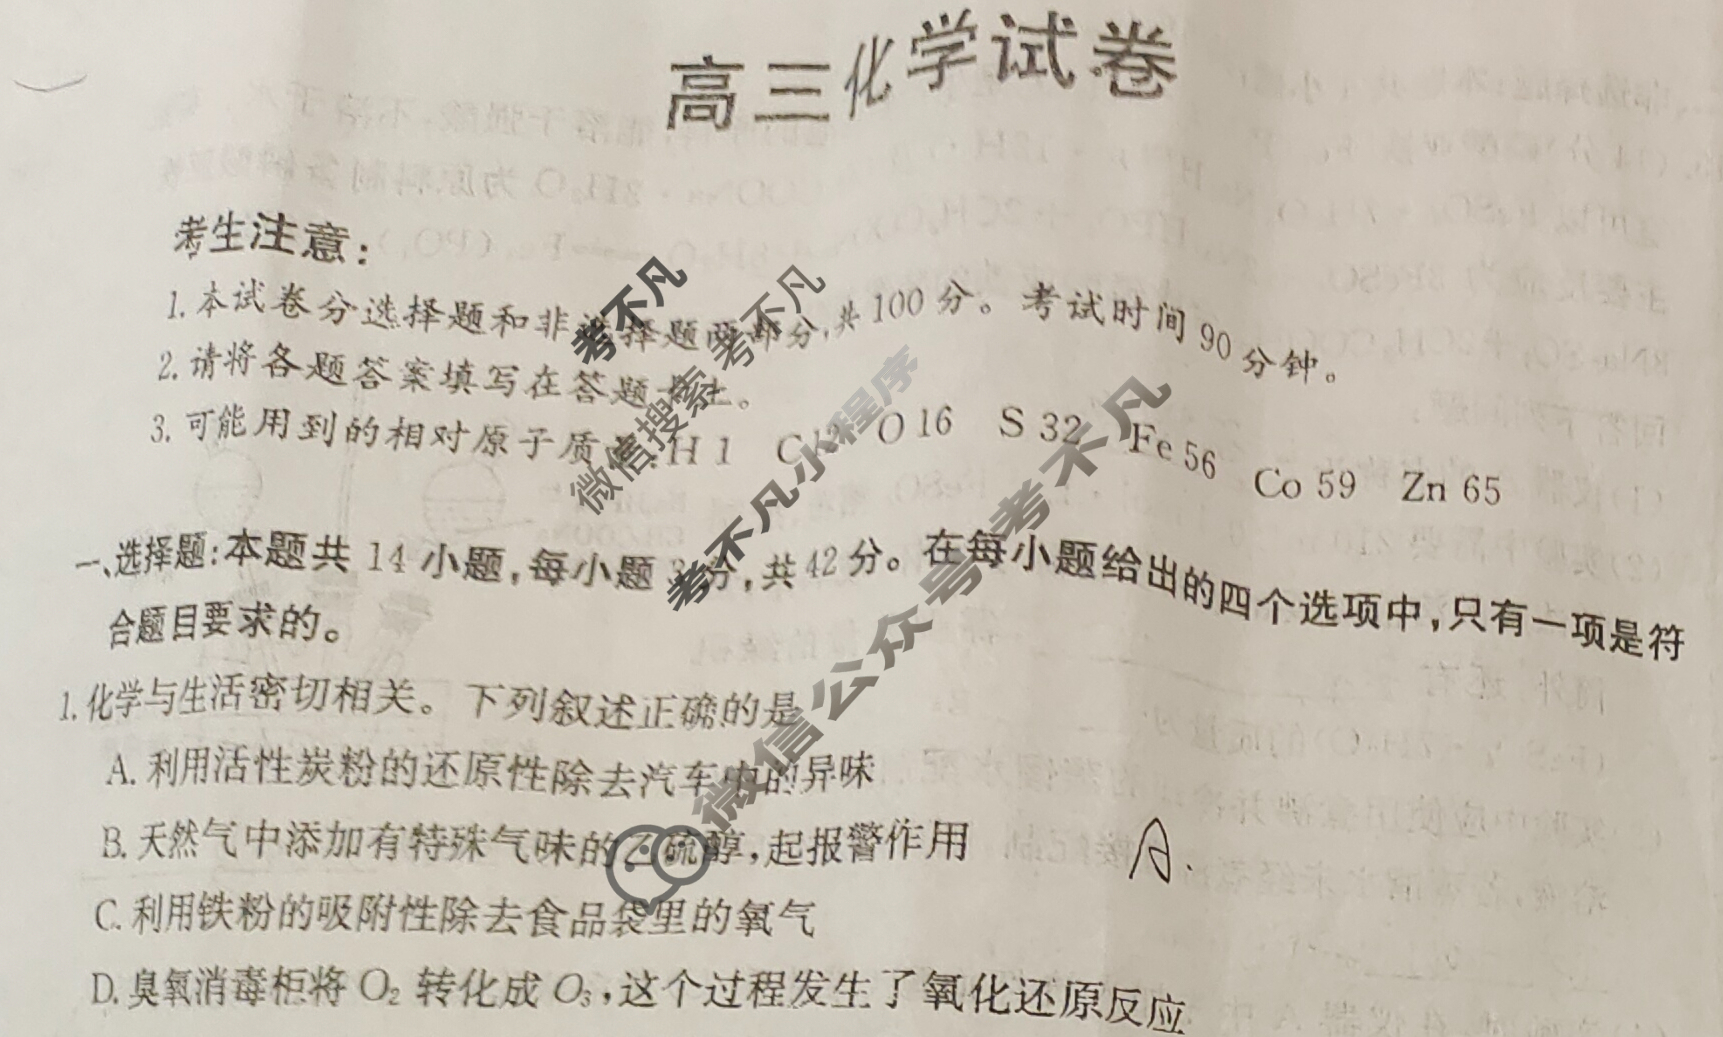 高三化学试卷
考生注意:
1.本试卷分选择题和非选择题两部分,共100分。考试时间90分钟。
2.请将各题答案填写在答题卡上。
3.可能用到的相对原子质量:H 1 C 12 O 16 S 32 Fe 56 Co 59 Zn 65
一、选择题:本题共14小题,每小题3分,共42分。在每小题给出的四个选项中,只有一项是符
合题目要求的。
1.化学与生活密切相关。下列叙述正确的是
A.利用活性炭粉的还原性除去汽车中的异味
B.天然气中添加有特殊气味的乙硫醇,起报警作用
A.
C.利用铁粉的吸附性除去食品袋里的氧气
D.臭氧消毒柜将O₂转化成O₃,这个过程发生了氧化还原反应
考不凡
微信搜索 考不凡
考不凡小程序
微信公众号考不凡